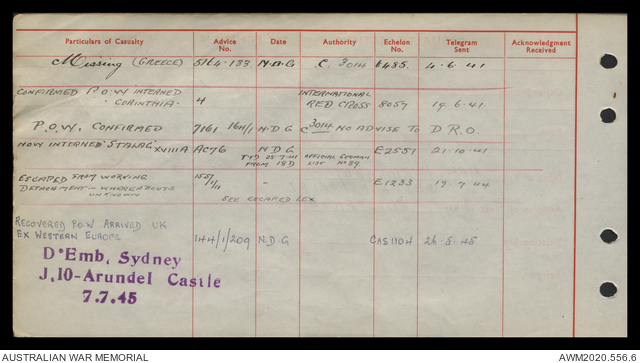 Particulars of Casualty Advice No. Date Authority Echelon No. Telegram Sent Acknowledgment Received
Missing (GREECE) 5164.133 N.D.G C. 3014 6485 4.6.41
CONFIRMED P.O.W INTERNED
CORINTHIA. 4 INTERNATIONAL RED CROSS 8057 19.6.41.
P.O.W. CONFIRMED 7161 1611/1 N.D.G C 3014 NO ADVISE TO D.R.O.
NOW INTERNED STALAG XVIIIA AC76 N D G E2551 21-10-41
TFD 25-7-41 OFFICIAL GERMAN
FROM 18D LIST No 89
ESCAPED FROM WORKING
DETACHMENT - WHEREABOUTS
UNKNOWN 1557 - E1233 19.7.44
SEE ESCAPED
RECOVERED P.O.W ARRIVED UK
EX WESTERN EUROPE 144/1/209 N.D.G CAS1104 26.5.45
D'Emb, Sydney
J.10-Arundel Castle
7.7.45
AUSTRALIAN WAR MEMORIAL AWM2020.556.6